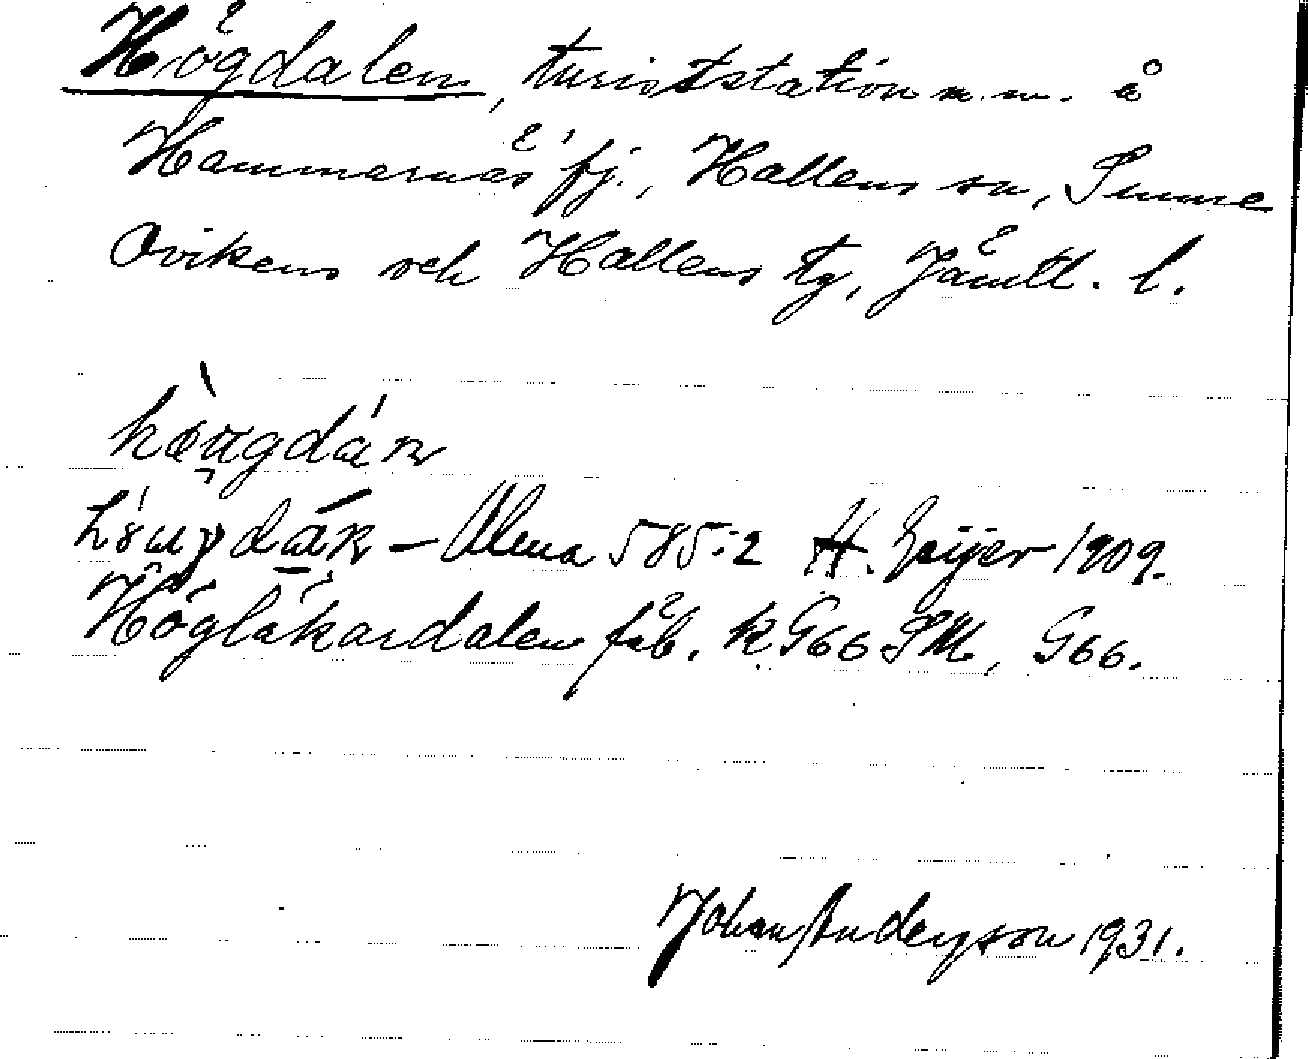 Högdalen, turiststation m.m. å
Hammarnäsfj., Hallens sn, Sunne
Ovikens och Hallens tg, Jämtl. l.
Alma 585:2 H. Geijer 1909.
Högläkardalen fäb. k G66 SM, G66.
Johan Anderson 1931.